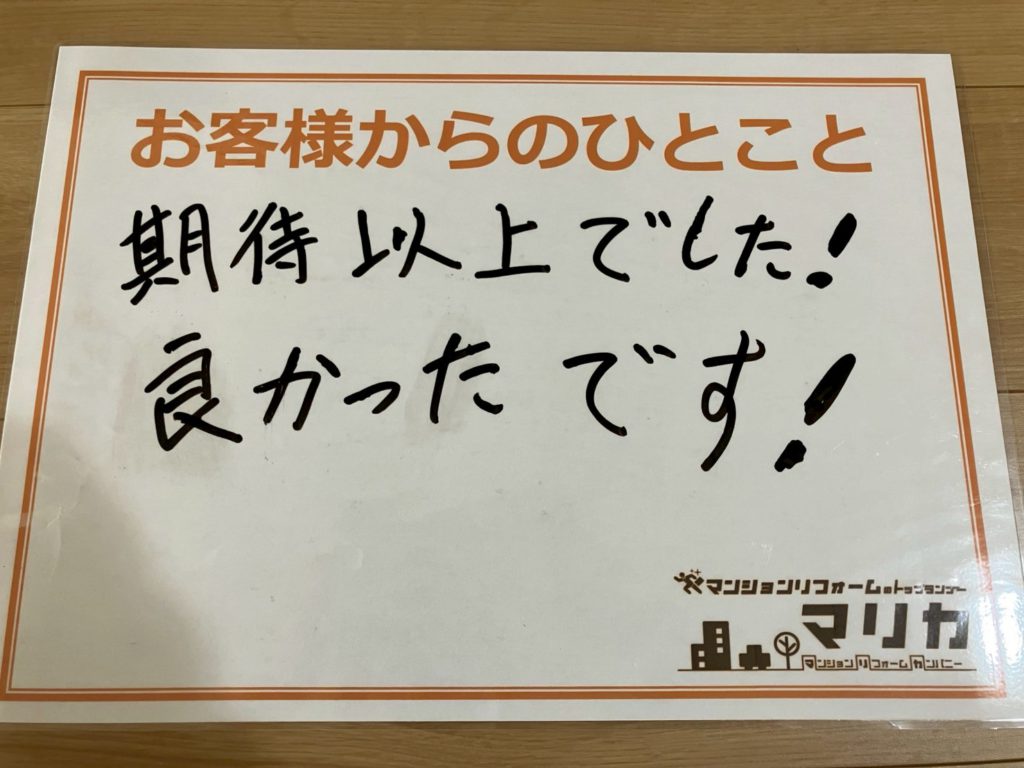 お客様からのひとこと
期待以上でした!
良かったです!
マンションリフォームのトップランナー
マリカ
マンションリフォームカンパニー